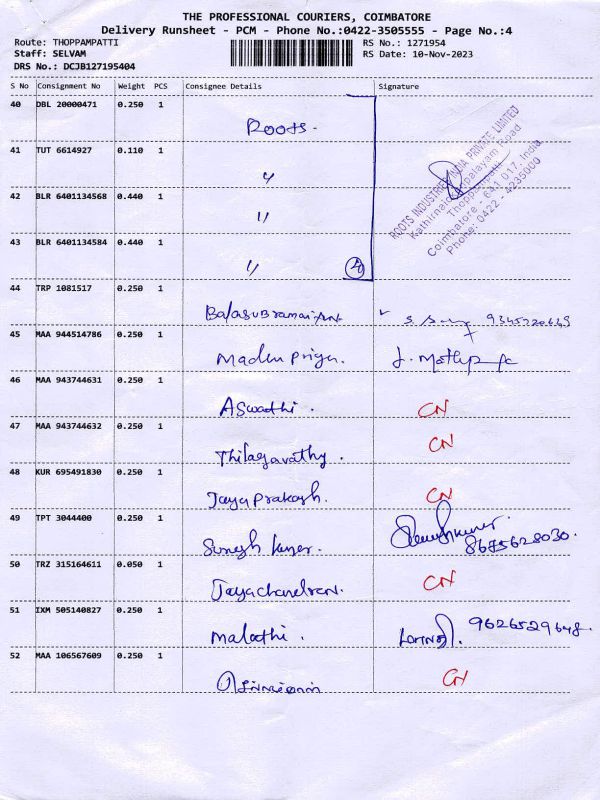 THE PROFESSIONAL COURIERS, COIMBATORE
Delivery Runsheet - PCM - Phone No.:0422-3505555 - Page No.:4
Route: THOPPAMPATTI
Staff: SELVAM
DRS No.: DCJB127195404
RS No.: 1271954
RS Date: 10-Nov-2023
S No Consignment No Weight PCS Consignee Details Signature
40 DBL 20000471 0.250 1
Roots.
41 TUT 6614927 0.110 1
"
42 BLR 6401134568 0.440 1
"
43 BLR 6401134584 0.440 1
" 4
ROOTS INDUSTRIES INDIA PRIVATE LIMITED
Kathirnaickenpalayam Road
Thoppampatti
Coimbatore - 641 017. India
Phone: 0422 - 4235000
44 TRP 1081517 0.250 1
Balasubramaniyan
45 MAA 944514786 0.250 1
Madhu Priya.
46 MAA 943744631 0.250 1
Aswathi. CN
47 MAA 943744632 0.250 1
Thilagavathy. CN
48 KUR 695491830 0.250 1
Jaya Prakash. CN
49 TPT 3044400 0.250 1
Suresh Kumar. 8675628030.
50 TRZ 315164611 0.050 1
Jayachandran. CN
51 IXM 505140827 0.250 1
Malathi. 9626529648.
52 MAA 106567609 0.250 1
CN